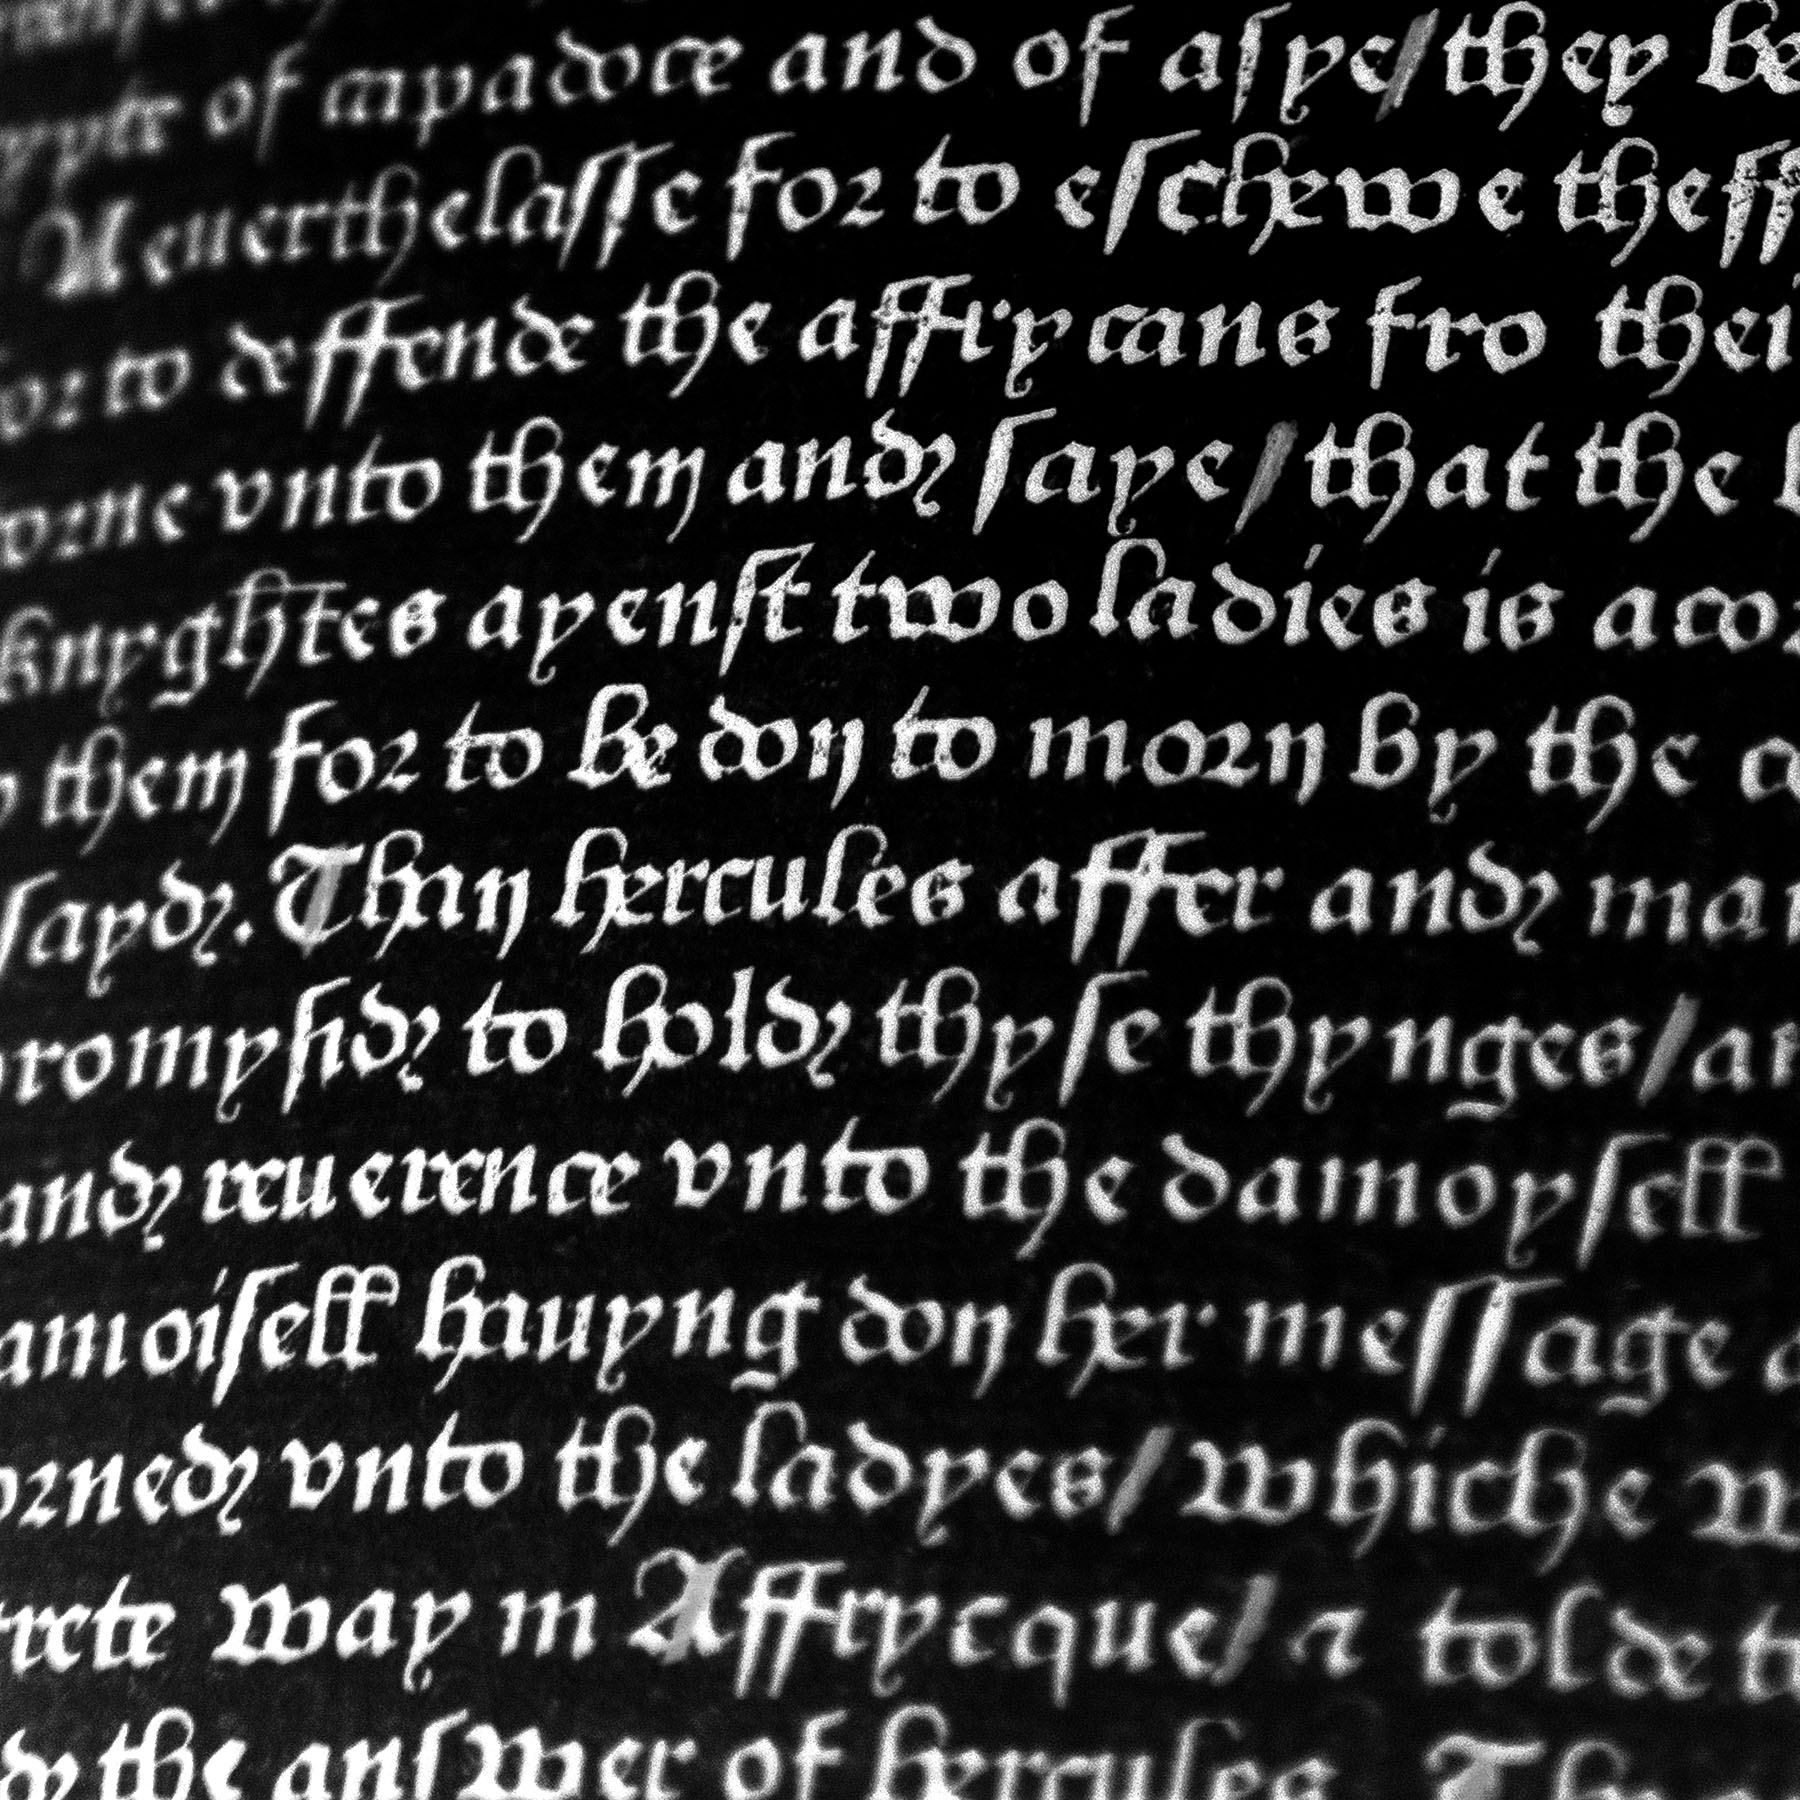 of capadoce and of asye/they
Neuerthelasse for to eschewe
for to deffende the affrycans fro
vnto them and saye/that the
knyghtes ayenst two ladies is
them for to be don to morn by the
sayd. Than hercules affer and
promysid to hold thyse thynges/
and reuerence vnto the damoysell
hauyng don her message
vnto the ladyes/whiche
way in Affrycque/⁊ tolde
the answer of hercules